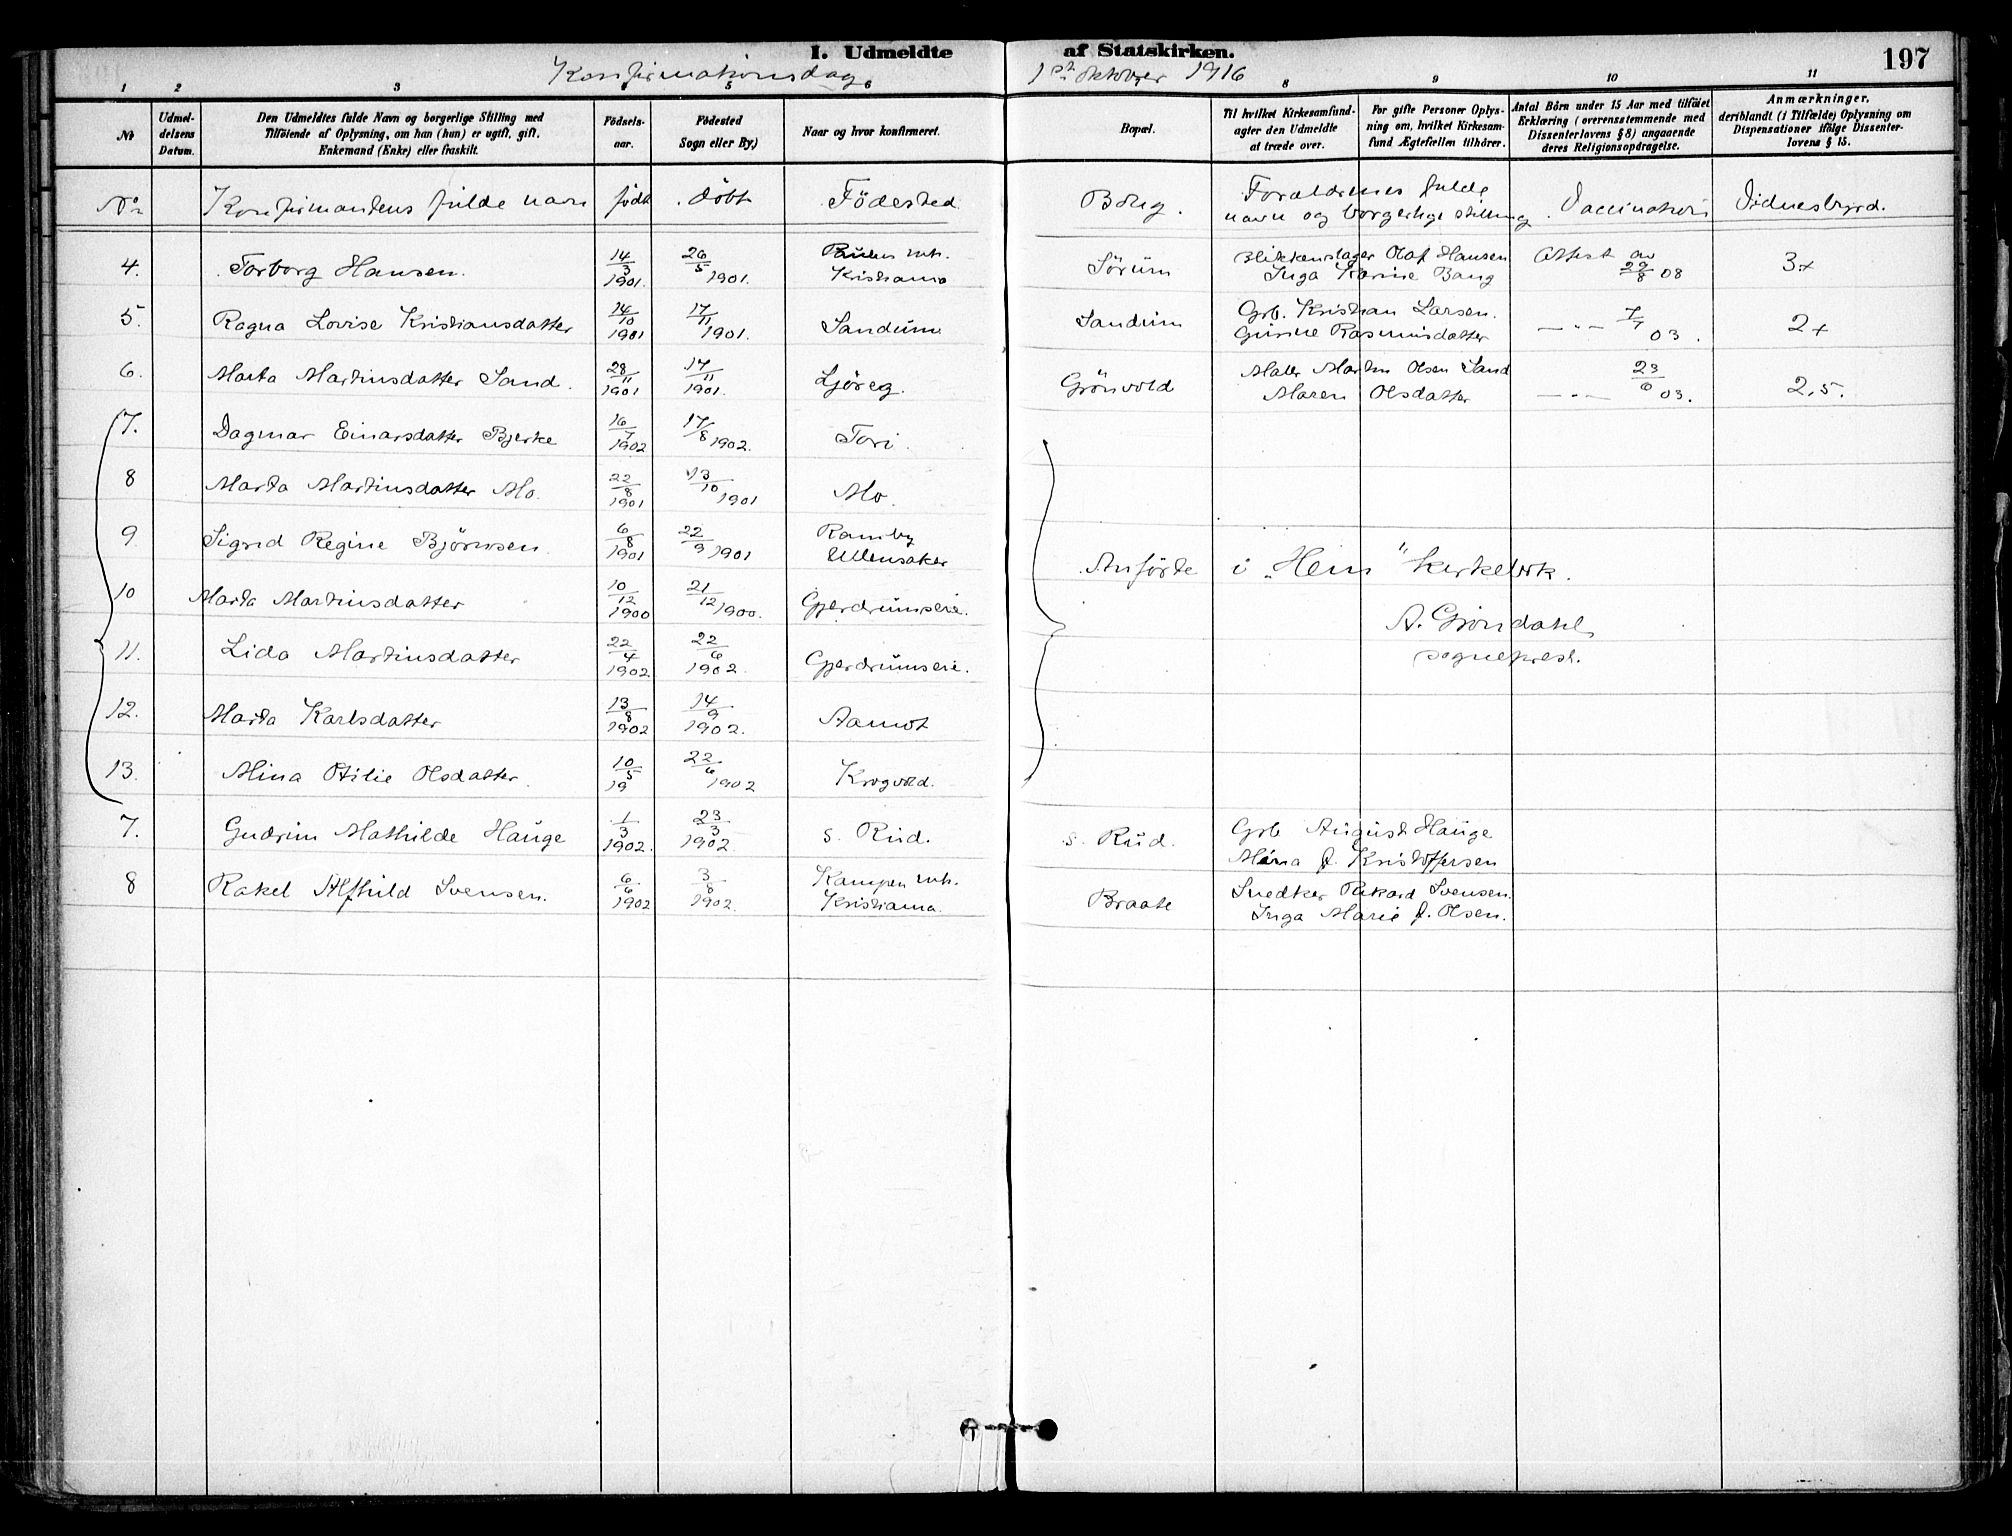 I. Udmeldte af Statskirken. 197
Konfirmationsdag 1ste oktober 1916
1 2 3 4 5 6 8 9 10 11
No
Udmeldelsens Datum.
Den Udmeldtes fulde Navn og borgerlige Stilling med
Tilföiende af Oplysning, om han (hun) er ugift, gift,
Enkemand (Enke) eller fraskilt.
Födselsaar.
Födested
Sogn eller By.)
Naar og hvor konfirmeret.
Bopæl.
Til hvilket Kirkesamfund-
agter den Udmeldte
at træde over.
For gifte Personer Oplys-
ning om, hvilket Kirkesam-
fund Ægtefællen tilhörer.
Antal Börn under 15 Aar med tilföiet
Erklæring (overensstemmende med
Dissenterlovens § 8) angaaende
deres Religionsopdragelse.
Anmærkninger,
deriblandt (i Tilfælde) Oplysning om
Dispensationer ifölge Dissenter-
lovens § 15.
No Konfirmantens fulde navn født døbt Födested Bolig. Forældrenes fulde
navn og borgerlige stilling Vaccination Vidnesbyrd.
4. Torborg Hansen. 14/3 1901. 26/5 1901. mh. Kristiania Sörum Blikkenslager Olaf Hansen
Inga Karine Bang Attest av 29/8 08 3+
5. Ragna Lovise Kristiansdatter 14/10 1901 17/11 1901. Sandum Sandum Grb. Kristian Larsen.
Gurine Rasmusdatter —"— 7/7 03. 2+
6. Marta Martinsdatter Sand. 28/11 1901 17/11 1901. Ljöreg. Grönvold Maler Martin Olsen Sand
Maren Olsdatter —"— 23/6 03. 2,5.
7. Dagmar Einarsdatter Bjerke 16/7 1902 17/8 1902. Tori.
8 Marta Martinsdatter Mo. 22/8 1901 13/10 1901 Mo.
9. Sigrid Regine Björnsen. 6/8 1901 22/9 1901 Ramby
Ullensaker
Anförte i „Hem" kirkebok.
10 Marta Martinsdatter 10/12 1900 21/12 1900. Gjerdrumseie.
A. Gröndahl
sogneprest.
11. Lida Martinsdatter 22/4 1902. 22/6 1902. Gjerdrumseie.
12. Marta Karlsdatter 13/8 1902 14/9 1902. Aamot
13. Mina Otilie Olsdatter. 10/5 19 22/6 1902 Krogvold.
7. Gudrun Mathilde Hauge 1/3 1902. 23/3 1902. s. Rud. s. Rud. Grb August Hauge
Mina f. Kristoffersen
8 Rakel Alfhild Svensen. 6/6 1902 3/8 1902. Kampen mh.
Kristiania. Braate Snedker Rikard Svensen.
Inga Marie f. Olsen.